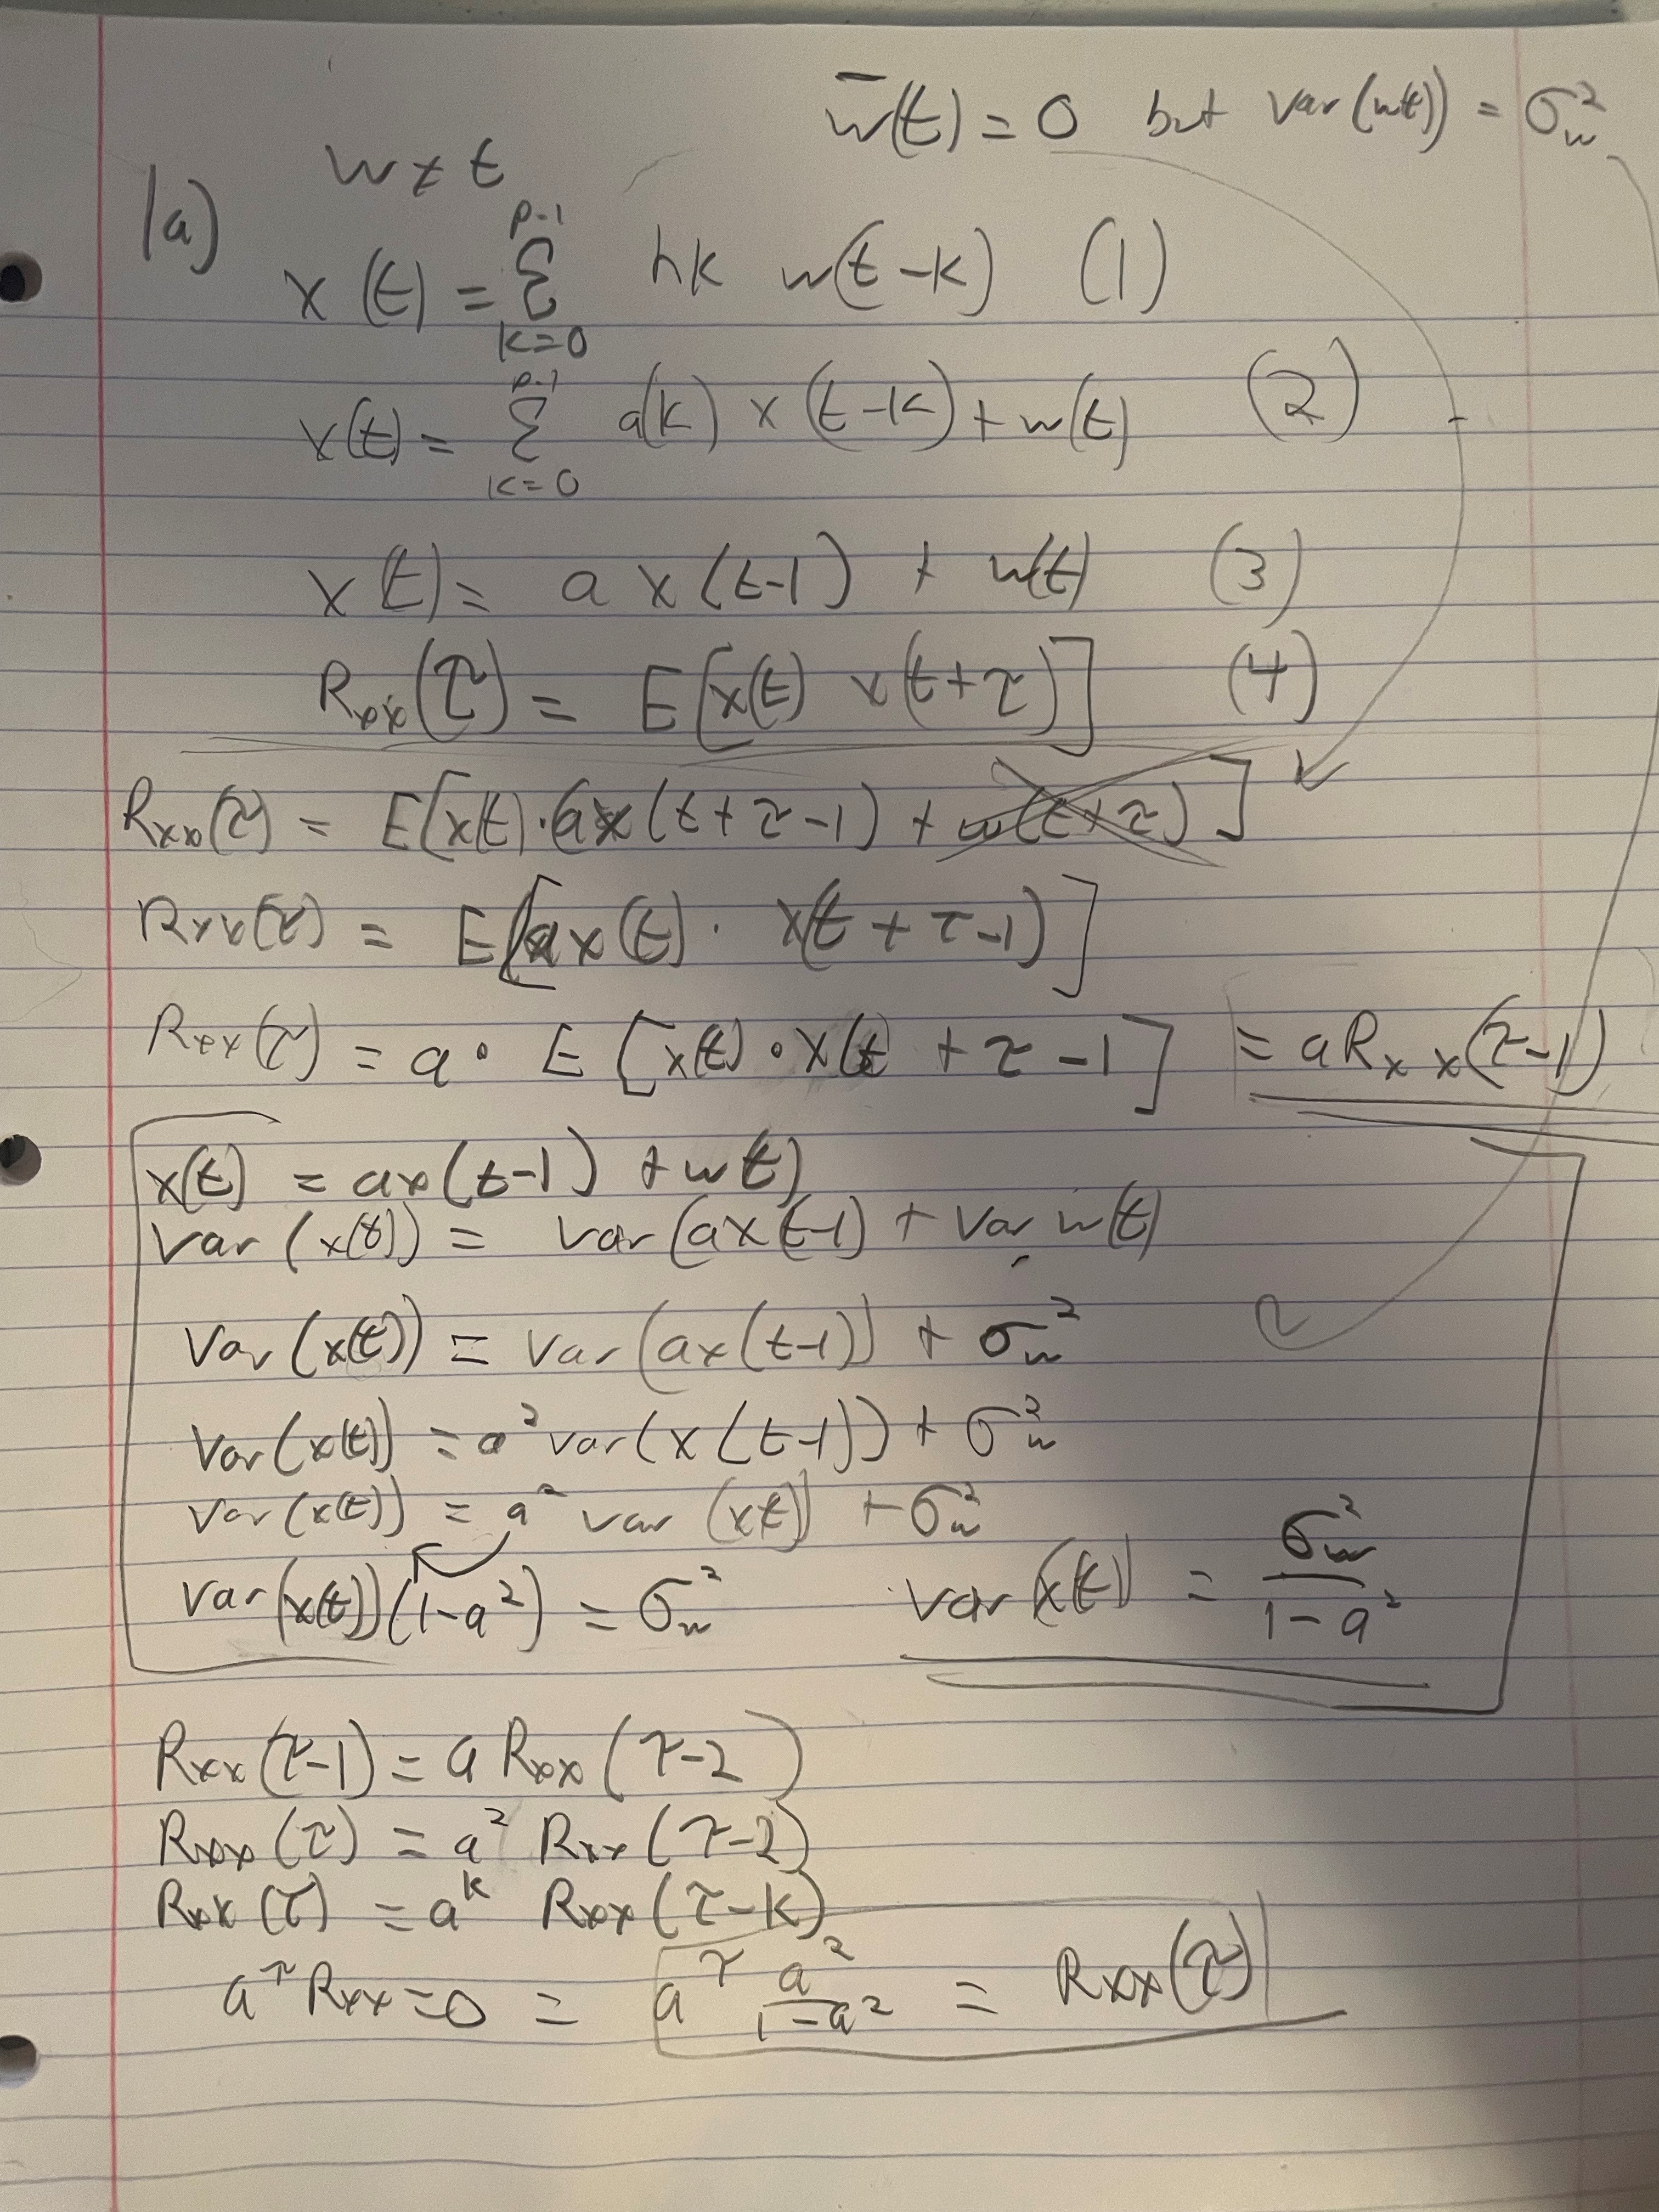 w̅(t) = 0 but var(w(t)) = σ_w^2
w ≠ t
1a)
x(t) = Σ_{k=0}^{p-1} hk w(t-k) (1)
x(t) = Σ_{k=0}^{p-1} a(k) x(t-k) + w(t) (2)
x(t) = a x(t-1) + w(t) (3)
Rxx(τ) = E[x(t) x(t+τ)] (4)
Rxx(τ) = E[x(t)·(ax(t+τ-1) + w(t+τ)]
Rxx(τ) = E[ax(t) · x(t+τ-1)]
Rxx(τ) = a · E[x(t) · x(t+τ-1] = aRxx(τ-1)
x(t) = ax(t-1) + wt)
var(x(t)) = var(ax(t-1) + var w(t)
Var(x(t)) = var(ax(t-1)) + σ_w^2
Var(x(t)) = a^2 var(x(t-1)) + σ_w^2
Var(x(t)) = a^2 var(xt)) + σ_w^2
Var(x(t))(1-a^2) = σ_w^2 var(x(t)) = σ_w^2 / 1-a^2
Rxx(τ-1) = a Rxx(τ-2)
Rxx(τ) = a^2 Rxx(τ-2)
Rxx(τ) = a^k Rxx(τ-k)
a^τ Rxx=0 = a^τ a^2 / 1-a^2 = Rxx(τ)